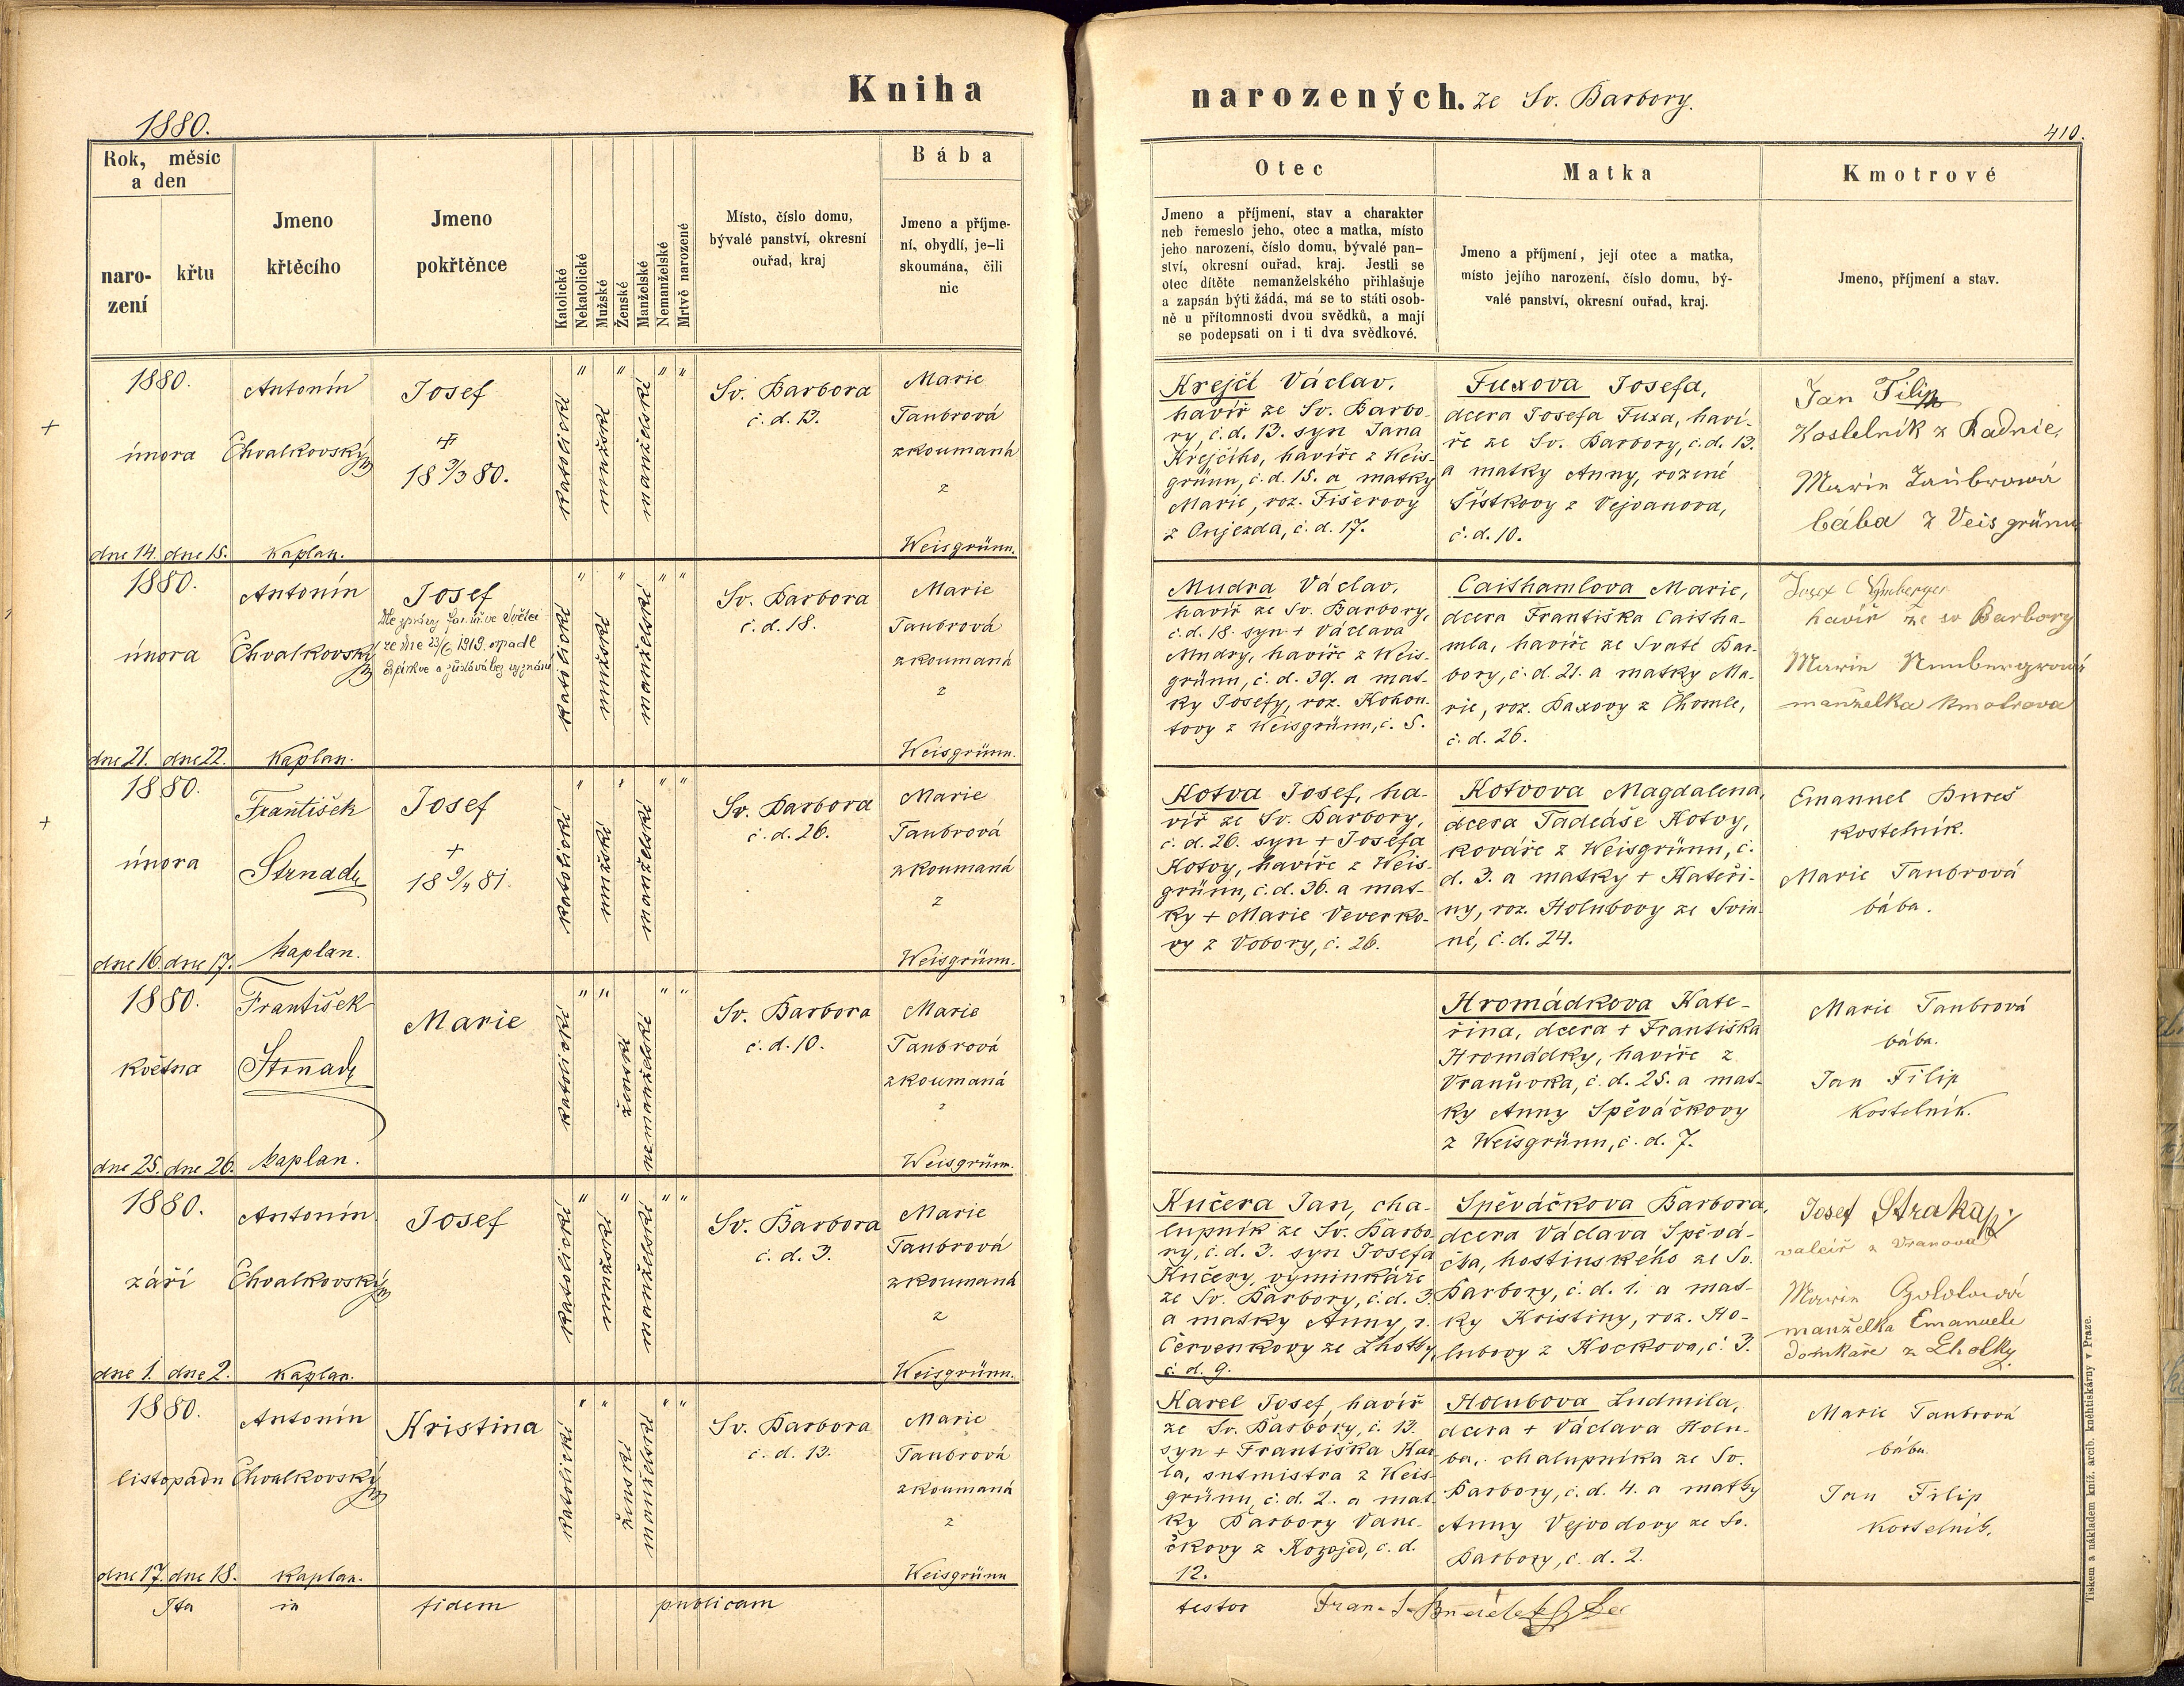 Kniha
1880.
Rok, měsíc
a den
naro-
zení
křtu
Jmeno
křtěcího
Jmeno
pokřtěnce
Katolické
Nekatolické
Mužské
Ženské
Manželské
Nemanželské
Mrtvě narozené
Místo, číslo domu,
bývalé panství, okresní
ouřad, kraj
Bába
Jmeno a příjme-
ní, obydlí, je-li
skoumána, čili
nic
narozených. ze Sv. Barbory.
410.
Otec
Jmeno a příjmení, stav a charakter
neb řemeslo jeho, otec a matka, místo
jeho narození, číslo domu, bývalé pan-
ství, okresní ouřad, kraj. Jestli se
otec dítěte nemanželského přihlašuje
a zapsán býti žádá, má se to státi osob-
ně u přítomnosti dvou svědků, a mají
se podepsati on i ti dva svědkové.
Matka
Jmeno a příjmení, její otec a matka,
místo jejího narození, číslo domu, bý-
valé panství, okresní ouřad, kraj.
Kmotrové
Jmeno, příjmení a stav.
1880.
února
dne 14. dne 15.
Antonín
Chvalkovský
Kaplan.
Josef
18 3/3 80.
katolické
"
mužské
"
manželské
" "
Sv. Barbora
č. d. 13.
Marie
Taubrová
zkoumaná
z
Weisgrünn.
Krejčí Václav,
havíř ze Sv. Barbo-
ry, č. d. 13. syn Jana
Krejčího, havíře z Weis-
grünn, č. d. 15. a matky
Marie, roz. Fišerovy
z Oujezda, č. d. 17.
Fuxova Josefa,
dcera Josefa Fuxa, haví-
ře ze Sv. Barbory, č. d. 13.
a matky Anny, rozené
Šístkovy z Vejvanova,
č. d. 10.
Jan Filip
Kostelník z Radnic,
Marie Taubrová
bába z Veisgrünu
1880.
února
dne 21. dne 22.
Antonín
Chvalkovský
Kaplan.
Josef
Dle zprávy far. úř. ve Světci
ze dne 23/6 1919. opadl
církve a zůstává bez vyznání
katolické
"
mužské
"
manželské
" "
Sv. Barbora
č. d. 18.
Marie
Taubrová
zkoumaná
z
Weisgrünn.
Mudra Václav,
havíř ze Sv. Barbory,
č. d. 18. syn + Václava
Mudry, havíře z Weis-
grünn, č. d. 39. a mat-
ky Josefy, roz. Kohou-
tovy z Weisgrünn, č. 5.
Caithamlova Marie,
dcera Františka Caitha-
mla, havíře ze Svaté Bar-
bory, č. d. 21. a matky Ma-
rie, roz. Paxovy z Chomle,
č. d. 26.
Josef
havíř ze sv Barbory
Marie
manželka kmotrova
1880.
února
dne 16. dne 17.
František
Strnad
Kaplan.
Josef
+
18 9/4 81.
katolické
"
mužské
"
manželské
" "
Sv. Barbora
č. d. 26.
Marie
Taubrová
zkoumaná
z
Weisgrünn.
Kotva Josef, ha-
víř ze Sv. Barbory,
č. d. 26. syn + Josefa
Kotvy, havíře z Weis-
grünn, č. d. 36. a mat-
ky + Marie Veverko-
vy z Vobory, č. 26.
Kotvova Magdalena,
dcera Tadeáše Kotvy,
kováře z Weisgrünn, č.
d. 3. a matky + Kateři-
ny, roz. Holubovy ze Svin-
né, č. d. 24.
Emanuel Bureš
kostelník.
Marie Taubrová
bába.
1880.
května
dne 25. dne 26.
František
Strnad
Kaplan.
Marie
katolické
" "
ženské
nemanželské
" "
Sv. Barbora
č. d. 10.
Marie
Taubrová
zkoumaná
z
Weisgrünn.
Hromádkova Kate-
řina, dcera + Františka
Hromádky, havíře z
Vranůvka, č. d. 25. a mat-
ky Anny Spěváčkovy
z Weisgrünn, č. d. 7.
Marie Taubrová
bába.
Jan Filip
Kostelník.
1880.
září
dne 1. dne 2.
Antonín
Chvalkovský
Kaplan.
Josef
katolické
"
mužské
"
manželské
" "
Sv. Barbora
č. d. 3.
Marie
Taubrová
zkoumaná
z
Weisgrünn.
Kučera Jan, cha-
lupník ze Sv. Barbo-
ry, č. d. 3. syn Josefa
Kučery, výminkáře
ze Sv. Barbory, č. d. 3.
a matky Anny, r.
Červenkovy ze Lhotky,
č. d. 9.
Spěváčkova Barbora,
dcera Václava Spěvá-
čka, hostinského ze Sv.
Barbory, č. d. 1. a mat-
ky Kristiny, roz. Ho-
lubovy z Kockova, č. 3.
Josef Straka
z Vranova
Marie
manželka Emanuele
domkáře z Lhotky.
1880.
listopadu
dne 17. dne 18.
Antonín
Chvalkovský
Kaplan.
Kristina
katolické
" "
ženské
manželské
" "
Sv. Barbora
č. d. 13.
Marie
Taubrová
zkoumaná
z
Weisgrünn
Karel Josef, havíř
ze Sv. Barbory, č. 13.
syn + Františka Kar-
la, hutmistra z Weis-
grünn, č. d. 2. a mat-
ky Barbory Vane-
čkovy z Kozojed, č. d.
12.
Holubova Ludmila,
dcera + Václava Holu-
ba, chalupníka ze Sv.
Barbory, č. d. 4. a matky
Anny Vejvodovy ze Sv.
Barbory, č. d. 2.
Marie Taubrová
bába.
Jan Filip
kostelník.
Ita in fidem publicam testor Fran.
Tiskem a nákladem kníž. arcib. kněhtiskárny v Praze.